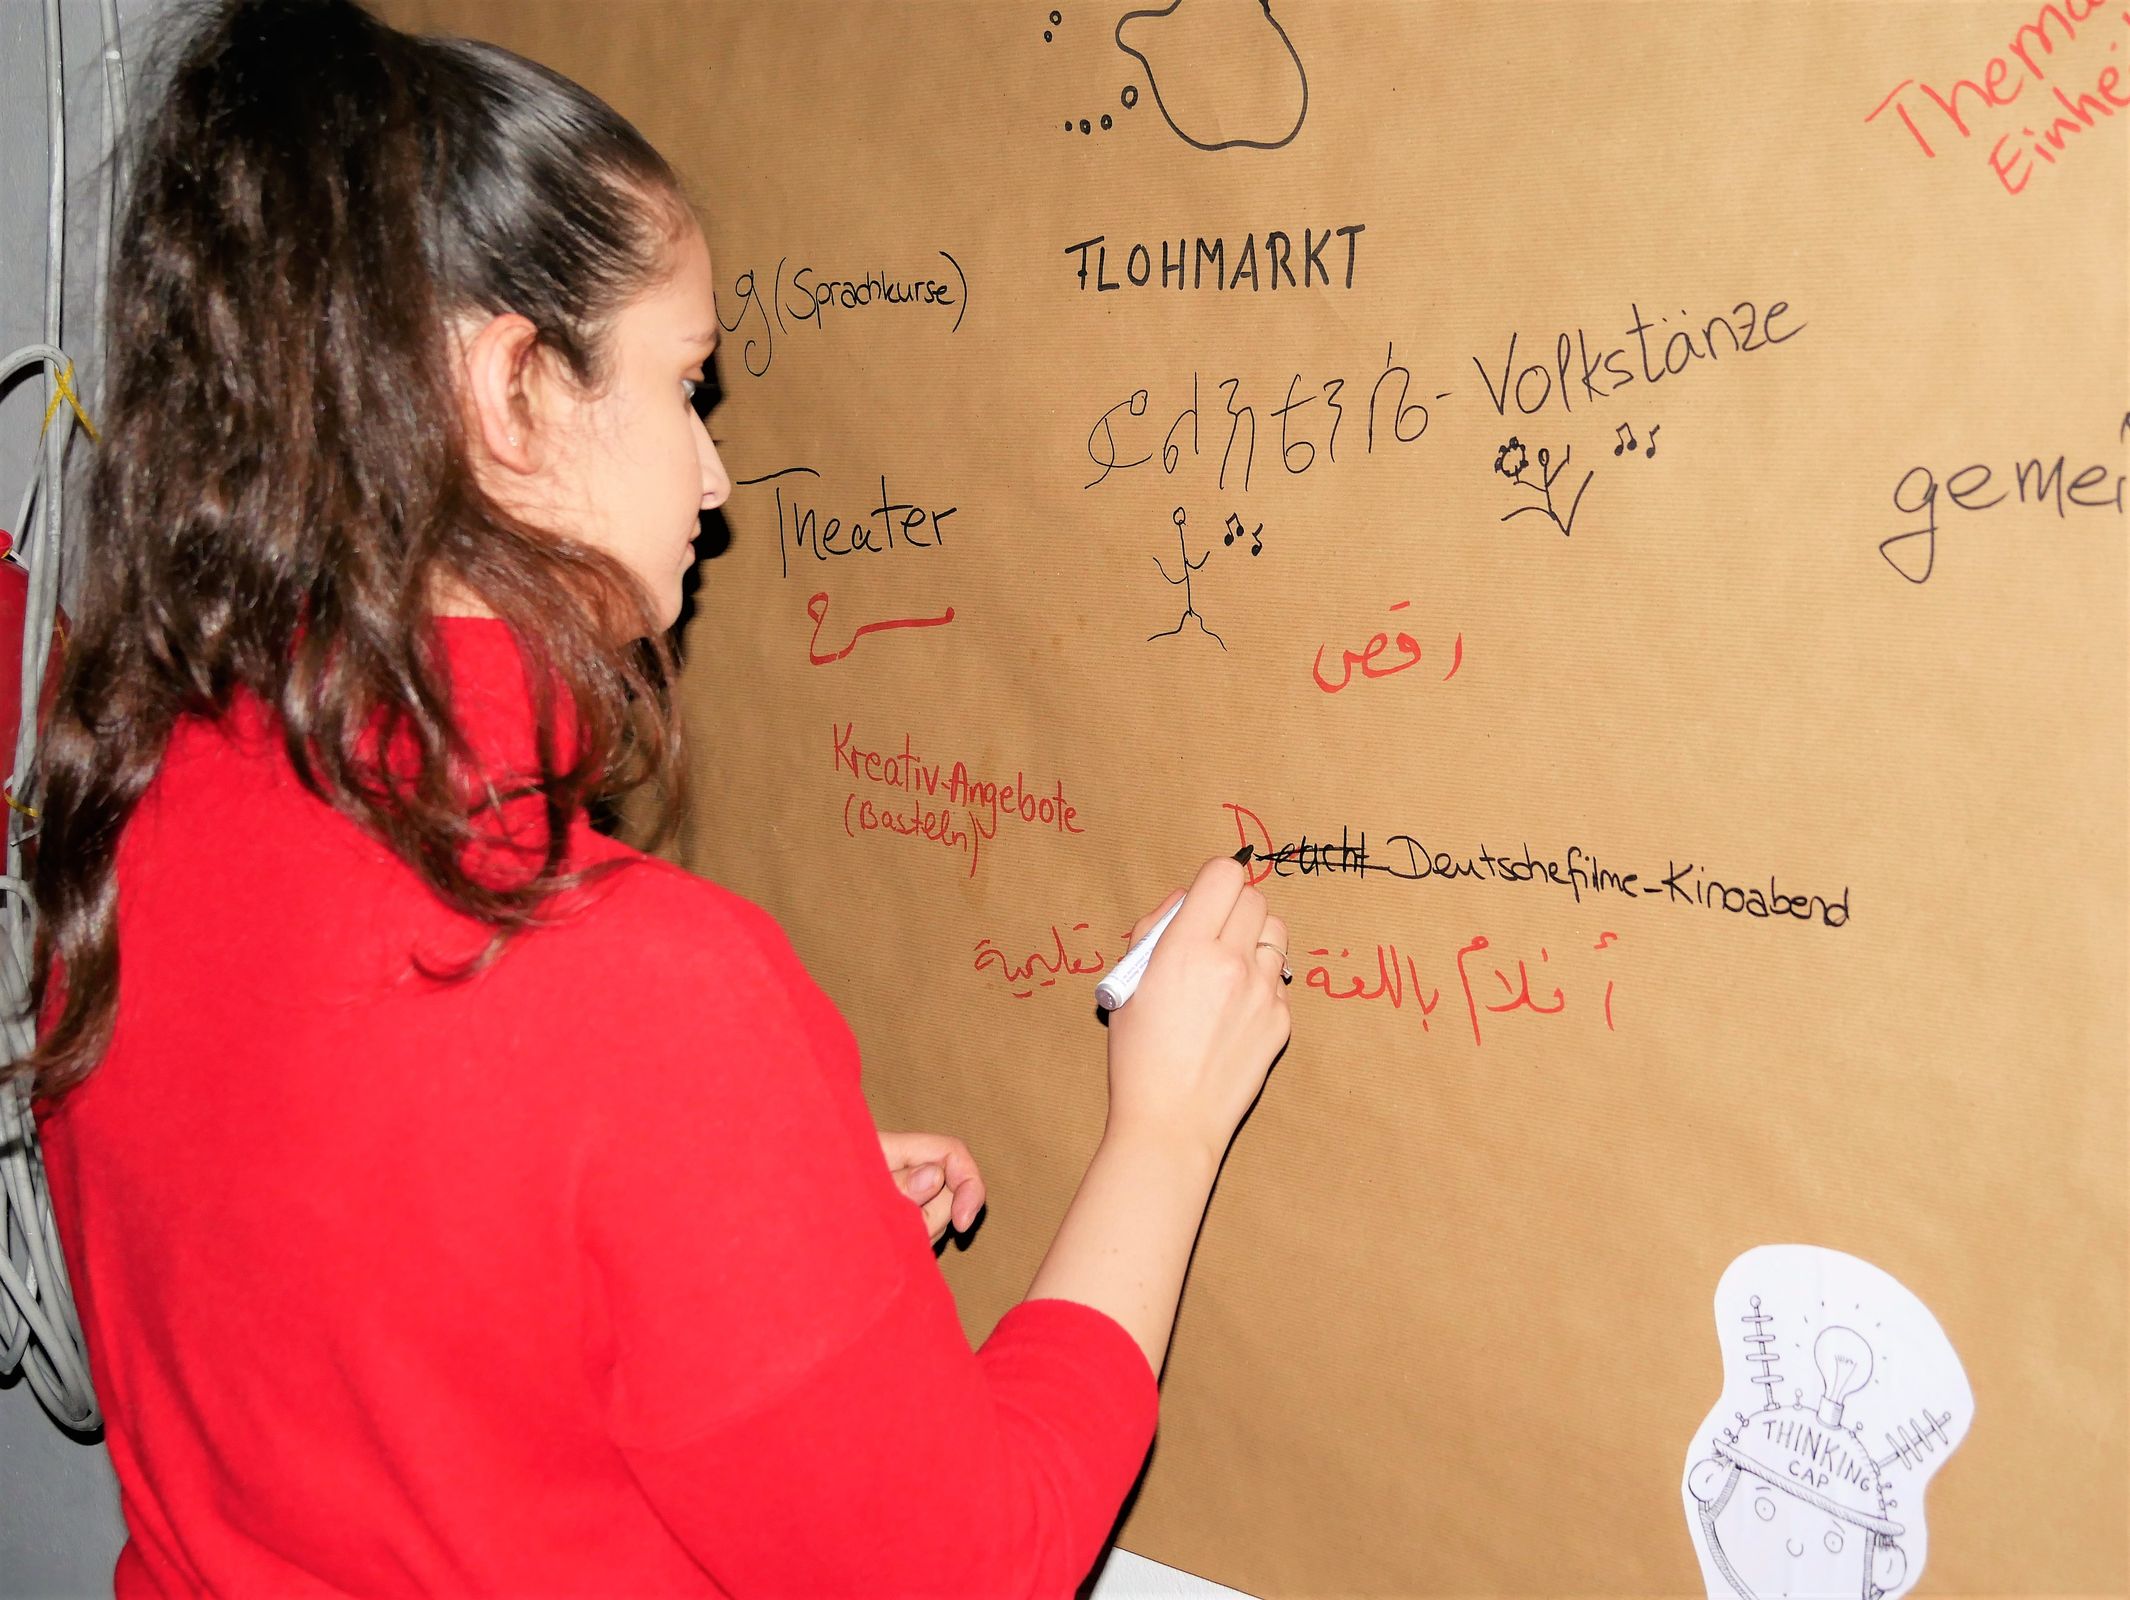 Thema
Einhei
g (Sprachkurse)
FLOHMARKT
- Volkstänze
gemei
Theater
مسرح
رقص
Kreativ-Angebote
(Basteln)
Deutschefilme-Kinoabend
أفلام باللغة
تعليمية
THINKING
CAP